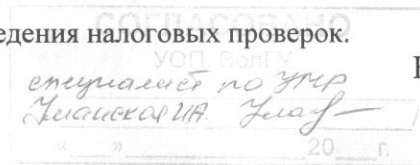 едения налоговых проверок.
СОГЛАСОВАНО
УОП ВолГУ
специалист по УМР
« » 20 г.